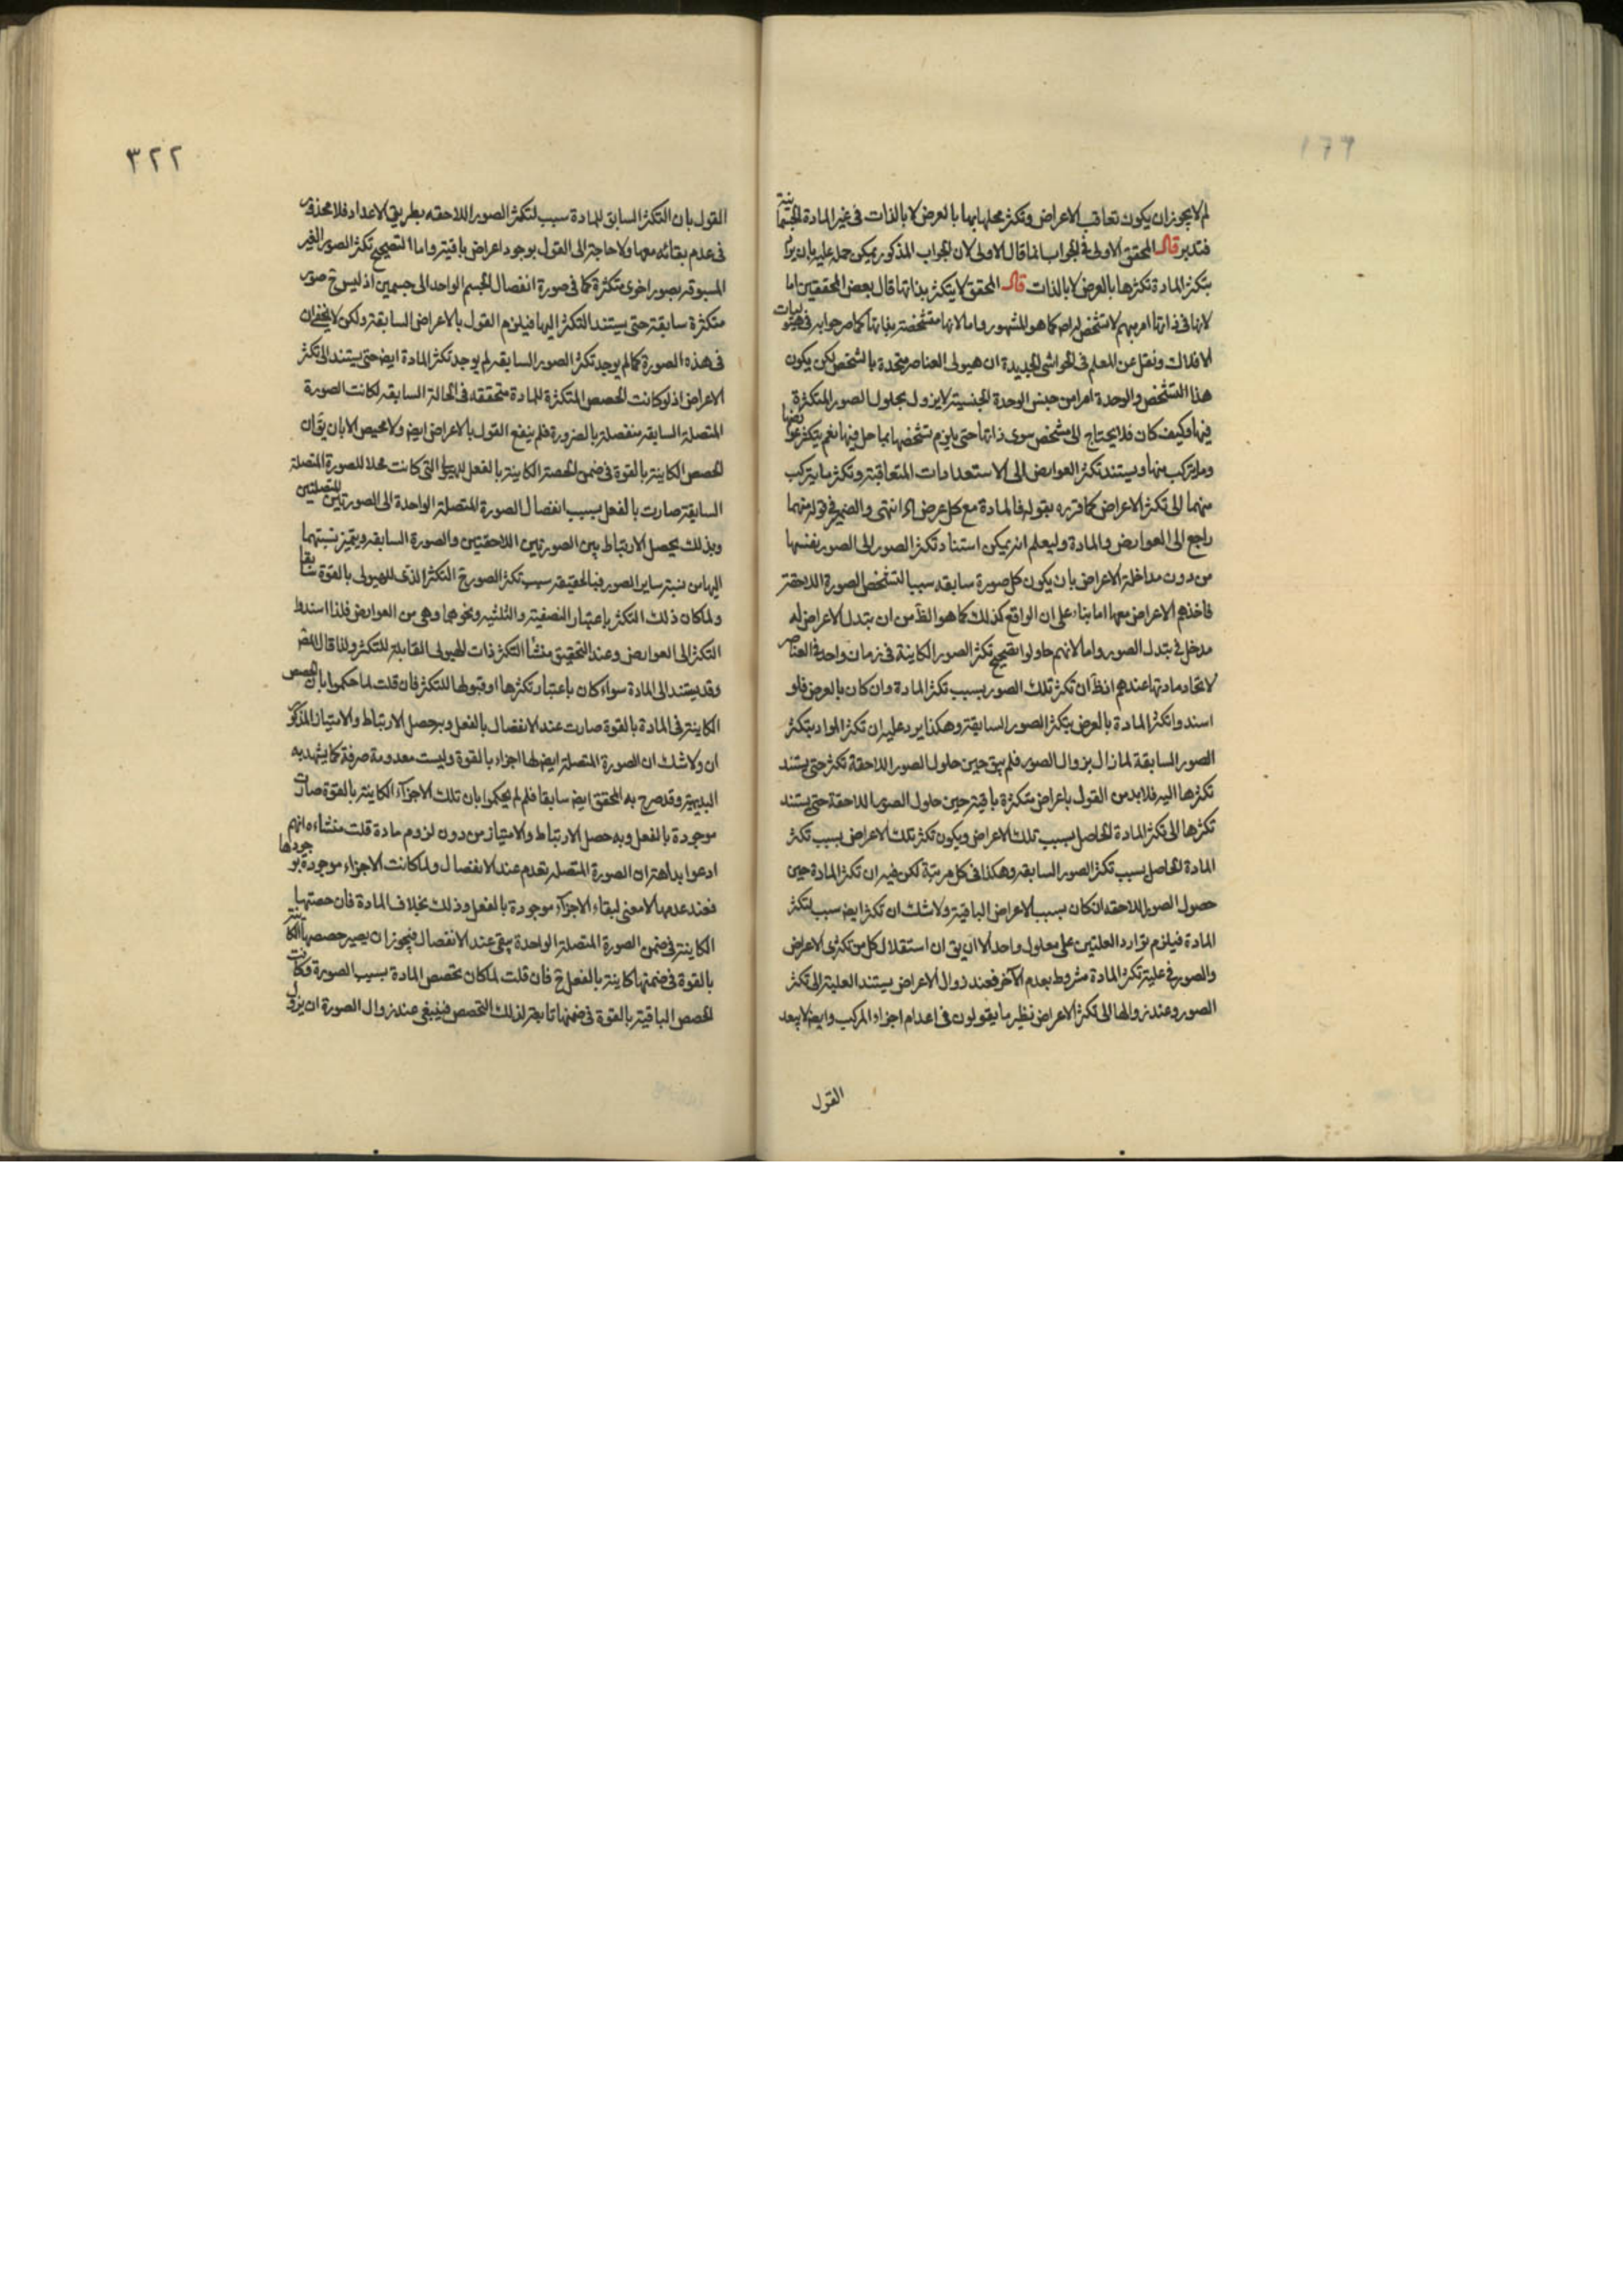 لم لا يجوز ان يكون تعاقب الاعراض وتكثر محلها بها بالعرض لا بالذات فى غير المادة الجسمانية
فتدبر قال المحقق الاولى فى الجواب انما قال الاولى لان الجواب المذكور يمكن حمله عليه بان يراد
بتكثر المادة تكثرها بالعرض لا بالذات قال المحقق لا يتكثر بذاتها قال بعض المحققين اما
لانها فى ذاتها امر مبهم لا تشخص لها كما هو المشهور واما لانها متشخصة بذاتها كما صرحوا به فى هيوليات
الافلاك ونقل عن المعلم فى الحواشى الجديدة ان هيولى العناصر متحدة بالشخص لكن يكون
هذا التشخص والوحدة امرا من جنس الوحدة الجنسية لا يزول بحلول الصور المتكثرة
فيها وكيف كان فلا يحتاج الى مشخص سوى ذاتها حتى يلزم تشخصها بما حل فيها نعم يتكثر عوارضها
وما يتركب منها ويستند تكثر العوارض الى الاستعدادات المتعاقبة وتكثر ما يتركب
منهما الى تكثر الاعراض كما قرره بقوله فالمادة مع كل عرض اه انتهى والضمير فى قوله منهما
راجع الى العوارض والمادة وليعلم انه يمكن استناد تكثر الصور الى الصور بنفسها
من دون مداخلة الاعراض بان يكون كل صورة سابقه سببا لتشخص الصورة اللاحقة
فاخذهم الاعراض معها اما بناء على ان الواقع كذلك كما هو الظ من ان تبدل الاعراض له
مدخل فى تبدل الصور واما لانهم حاولوا تصحيح تكثر الصور الكاينة فى زمان واحد فى العناصر
لاتحاد مادتها عندهم اذ ظ ان تكثر تلك الصور بسبب تكثر المادة وان كان بالعرض فلو
اسندوا تكثر المادة بالعرض بتكثر الصور السابقة وهكذا يرد عليه ان تكثر المواد بتكثر
الصور السابقة لما زال بزوال الصور فلم يبق حين حلول الصور اللاحقة تكثر حتى يستند
تكثرها اليه فلا بد من القول باعراض متكثرة باقية حين حلول الصور اللاحقة حتى يستند
تكثرها الى تكثر المادة الحاصل بسبب تلك الاعراض ويكون تكثر تلك الاعراض بسبب تكثر
المادة الحاصل بسبب تكثر الصور السابقه وهكذا فى كل مرتبة لكن فيه ان تكثر المادة حين
حصول الصور اللاحقه ان كان بسبب الاعراض الباقية ولا شك ان تكثر ايض سبب لتكثر
المادة فيلزم توارد العلتين على معلول واحد الا ان يق ان استقلال كل من تكثرى الاعراض
والصور فى علية تكثر المادة مشروط بعدم الآخر فعند زوال الاعراض يستند العلية الى تكثر
الصور وعند زوالها الى تكثر الاعراض نظير ما يقولون فى اعدام اجزاء المركب وايض لا يبعد
القول
٣٢٢
القول بان التكثر السابق للمادة سبب لتكثر الصور اللاحقه بطريق الاعداد فلا محذور
فى عدم بقائه معها ولا حاجة الى القول بوجود اعراض باقية واما التصحيح تكثر الصور الغير
المسبوقه بصور اخرى متكثرة كما فى صورة انفصال الجسم الواحد الى جسمين اذ ليس ح صور
متكثرة سابقة حتى يستند التكثر اليها فيلزم القول بالاعراض السابقة ولكن لا يخفى ان
فى هذه الصورة كما لم يوجد تكثر الصور السابقه لم يوجد تكثر المادة ايض حتى يستند الى تكثر
الاعراض اذ لو كانت الحصص المتكثرة للمادة متحققه فى الحالة السابقه لكانت الصورة
المتصلة السابقه منفصلة بالضرورة فلم ينفع القول بالاعراض ايض ولا محيص الا بان يق ان
الحصص الكاينة بالقوة فى ضمن الحصة الكاينة بالفعل للهيولى التى كانت محلا للصورة المتصلة
السابقة صارت بالفعل بسبب انفصال الصورة المتصلة الواحدة الى الصورتين المتصلتين
وبذلك يحصل الارتباط بين الصورتين اللاحقتين والصورة السابقه ويتميز نسبتهما
اليها من نسبة ساير الصور فبالحقيقه سبب تكثر الصور ح التكثر الذى للهيولى بالقوة سابقا
ولما كان ذلك التكثر باعتبار النصفية والثلثيه ونحوهما وهى من العوارض فلذا اسندوا
التكثر الى العوارض وعند التحقيق منشأ التكثر ذات الهيولى القابلة للتكثر ولذا قال المص
وقد يستند الى المادة سواء كان باعتبار تكثرها او قبولها للتكثر فان قلت لما حكموا بان الحصص
الكاينة فى المادة بالقوة صارت عند الانفصال بالفعل وبه حصل الارتباط والامتياز المذكور
ان ولا شك ان الصورة المتصلة ايض لها اجزاء بالقوة وليست معدومة صرفة كما يشهد به
البديهة وقد صرح به المحقق ايض سابقا فلم لم يحكموا بان تلك الاجزآء الكاينة بالقوة صارت
موجودة بالفعل وبه حصل الارتباط والامتياز من دون لزوم مادة قلت منشاءه انهم
ادعوا بداهة ان الصورة المتصله تعدم عند الانفصال ولما كانت الاجزاء موجودة بوجودها
فعند عدمها لا معنى لبقاء الاجزآء موجودة بالفعل وذلك بخلاف المادة فان حصتها
الكاينة فى ضمن الصورة المتصلة الواحدة يبقى عند الانفصال فيجوز ان يصير حصصها الكاينة
بالقوة فى ضمنها كاينة بالفعل ح فان قلت لما كان تحصص المادة بسبب الصورة وكانت
الحصص الباقية بالقوة فى ضمنها تابعة لذلك التحصص فينبغى عند زوال الصورة ان يزول